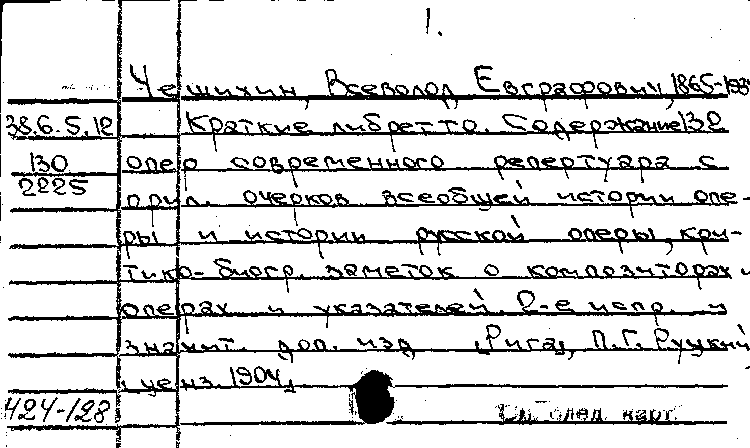 1.
Чешихин, Всеволод Евграфович, 1865-193
38.6.5.12 Краткие либретто. Содержание 132
130 опер современного репертуара с
2225 прил. очерков всеобщей истории опе-
ры и истории русской оперы, кри-
тико-биогр. заметок о композиторах и
операх и указателей. 2-е испр. и
значит. доп. изд [Рига], П.Г. Руцкий,
ценз. 1904]
424-128 См. след. карт.